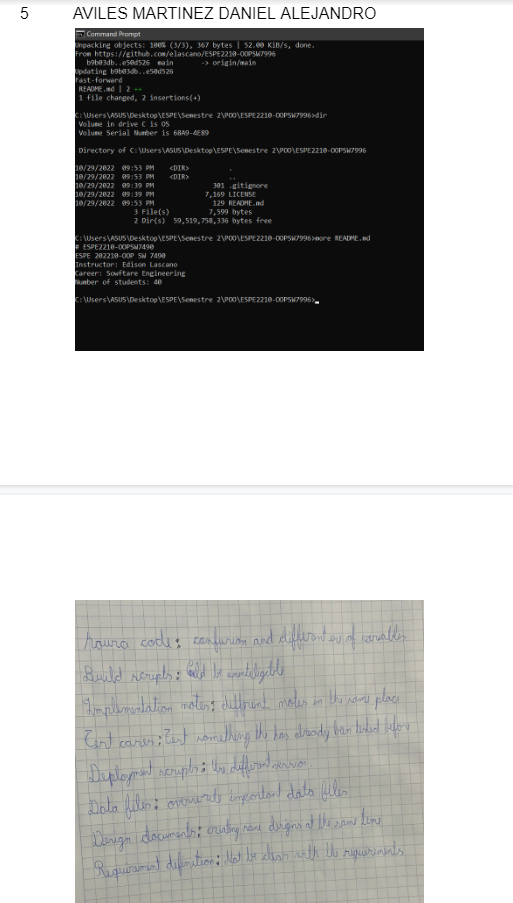 5 AVILES MARTINEZ DANIEL ALEJANDRO
Command Prompt
Unpacking objects: 100% (3/3), 367 bytes | 52.00 KiB/s, done.
From https://github.com/elascano/ESPE2210-OOPSW7996
b9b03db..e50d526 main -> origin/main
Updating b9b03db..e50d526
Fast-forward
README.md | 2 ++
1 file changed, 2 insertions(+)
C:\Users\ASUS\Desktop\ESPE\Semestre 2\POO\ESPE2210-OOPSW7996>dir
Volume in drive C is OS
Volume Serial Number is 68A9-4E89
Directory of C:\Users\ASUS\Desktop\ESPE\Semestre 2\POO\ESPE2210-OOPSW7996
10/29/2022 09:53 PM <DIR> .
10/29/2022 09:53 PM <DIR> ..
10/29/2022 09:39 PM 301 .gitignore
10/29/2022 09:39 PM 7,169 LICENSE
10/29/2022 09:53 PM 129 README.md
3 File(s) 7,599 bytes
2 Dir(s) 59,519,758,336 bytes free
C:\Users\ASUS\Desktop\ESPE\Semestre 2\POO\ESPE2210-OOPSW7996>more README.md
# ESPE2210-OOPSW7490
ESPE 202210-OOP SW 7490
Instructor: Edison Lascano
Career: Sowftare Engineering
Number of students: 40
C:\Users\ASUS\Desktop\ESPE\Semestre 2\POO\ESPE2210-OOPSW7996>
code: confusion and different of variables
Build scripts: Could be unintelligible
Implementation notes: different notes in the same place
Test cases: Test something the has already been tested before
Deployment scripts: Use different version.
Data files: overwrite important data files
Design documents: creating same designs at the same time
Requirement definition: Not be clear with the requirements